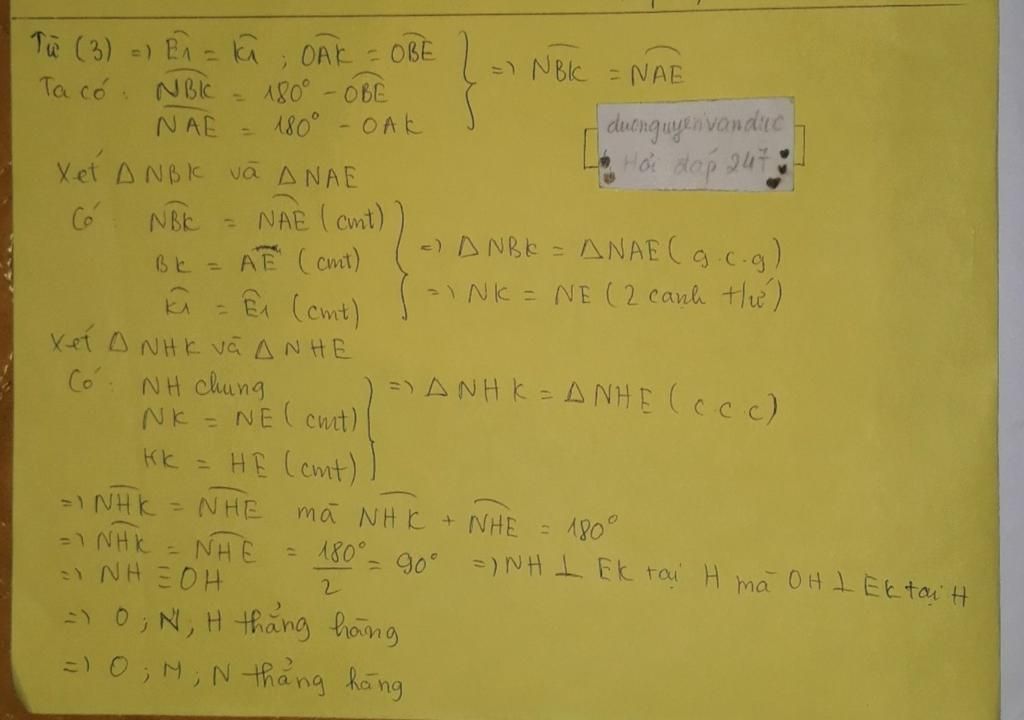 Từ (3) => Ê1 = K̂1 ; OAK = OBE } => NBK = NAE
Ta có : NBK = 180° - OBE
NAE = 180° - OAK
duongnguyenvanduc
Hỏi đáp 247
Xét △ NBK và △NAE
Có : NBK = NAE (cmt)
BK = AE (cmt) } => △ NBK = △NAE ( g.c.g)
K̂1 = Ê1 (cmt) => NK = NE ( 2 cạnh t/ứ )
Xét △ NHK và △ NHE
Có : NH chung } => △ NHK = △NHE ( c c c)
NK = NE ( cmt)
KK = HE (cmt)
=> NHK = NHE mà NHK + NHE = 180°
=> NHK = NHE = 180°/2 = 90° => NH ⊥ EK tại H mà OH ⊥ EK tại H
=> NH ≡ OH
=> O ; N ; H thẳng hàng
=> O ; M ; N thẳng hàng